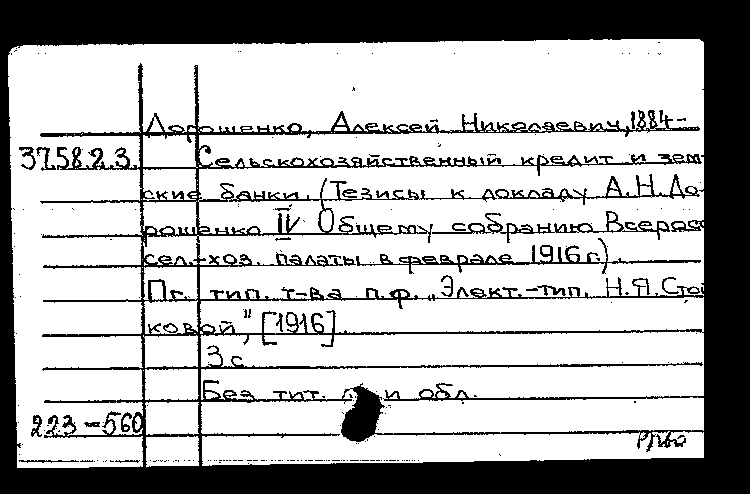 Дорошенко, Алексей Николаевич, 1884-
37.58.2.3. Сельскохозяйственный кредит и зем
ские банки. (Тезисы к докладу А.Н.До-
рошенко IV Общему собранию Всерос
сел.-хоз. палаты в феврале 1916 г.).
Пг. тип. т-ва п.ф. „Элект.-тип. Н.Я.Стой
ковой", [1916].
3 с.
Без тит. и обл.
223-560